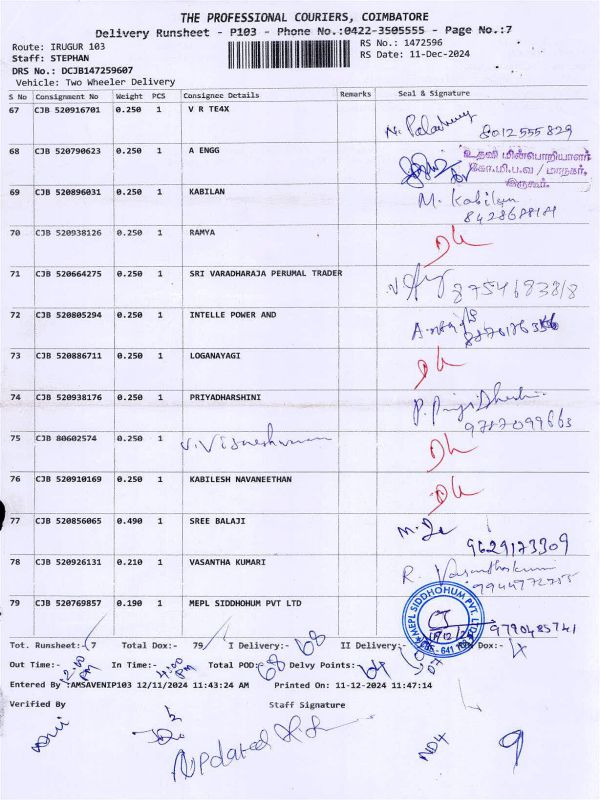 THE PROFESSIONAL COURIERS, COIMBATORE
Delivery Runsheet - P103 - Phone No.:0422-3505555 - Page No.:7
Route: IRUGUR 103
RS No.: 1472596
Staff: STEPHAN
RS Date: 11-Dec-2024
DRS No.: DCJB147259607
Vehicle: Two Wheeler Delivery
S No Consignment No Weight PCS Consignee Details Remarks Seal & Signature
67 CJB 520916701 0.250 1 V R TE4X
8012555829
68 CJB 520790623 0.250 1 A ENGG
உதவி மின்பொறியாளர்
கோ.மி.ப.வ / மாநகர்,
இருகூர்.
69 CJB 520896031 0.250 1 KABILAN M. Kabilan
70 CJB 520938126 0.250 1 RAMYA DL
71 CJB 520664275 0.250 1 SRI VARADHARAJA PERUMAL TRADER
8754683818
72 CJB 520805294 0.250 1 INTELLE POWER AND
73 CJB 520886711 0.250 1 LOGANAYAGI DL
74 CJB 520938176 0.250 1 PRIYADHARSHINI
75 CJB 80602574 0.250 1 DL
76 CJB 520910169 0.250 1 KABILESH NAVANEETHAN DL
77 CJB 520856065 0.490 1 SREE BALAJI
9629173309
78 CJB 520926131 0.210 1 VASANTHA KUMARI R. Vasanthakumari
9944772755
79 CJB 520769857 0.190 1 MEPL SIDDHOHUM PVT LTD
9790485741
Tot. Runsheet:- 7 Total Dox:- 79 I Delivery:- 68 II Delivery:- Dox:-
Out Time:- 12.00 PM In Time:- 4:00 PM Total POD: 68 Delvy Points:
Entered By :AMSAVENIP103 12/11/2024 11:43:24 AM Printed On: 11-12-2024 11:47:14
Verified By Staff Signature
Updated
9